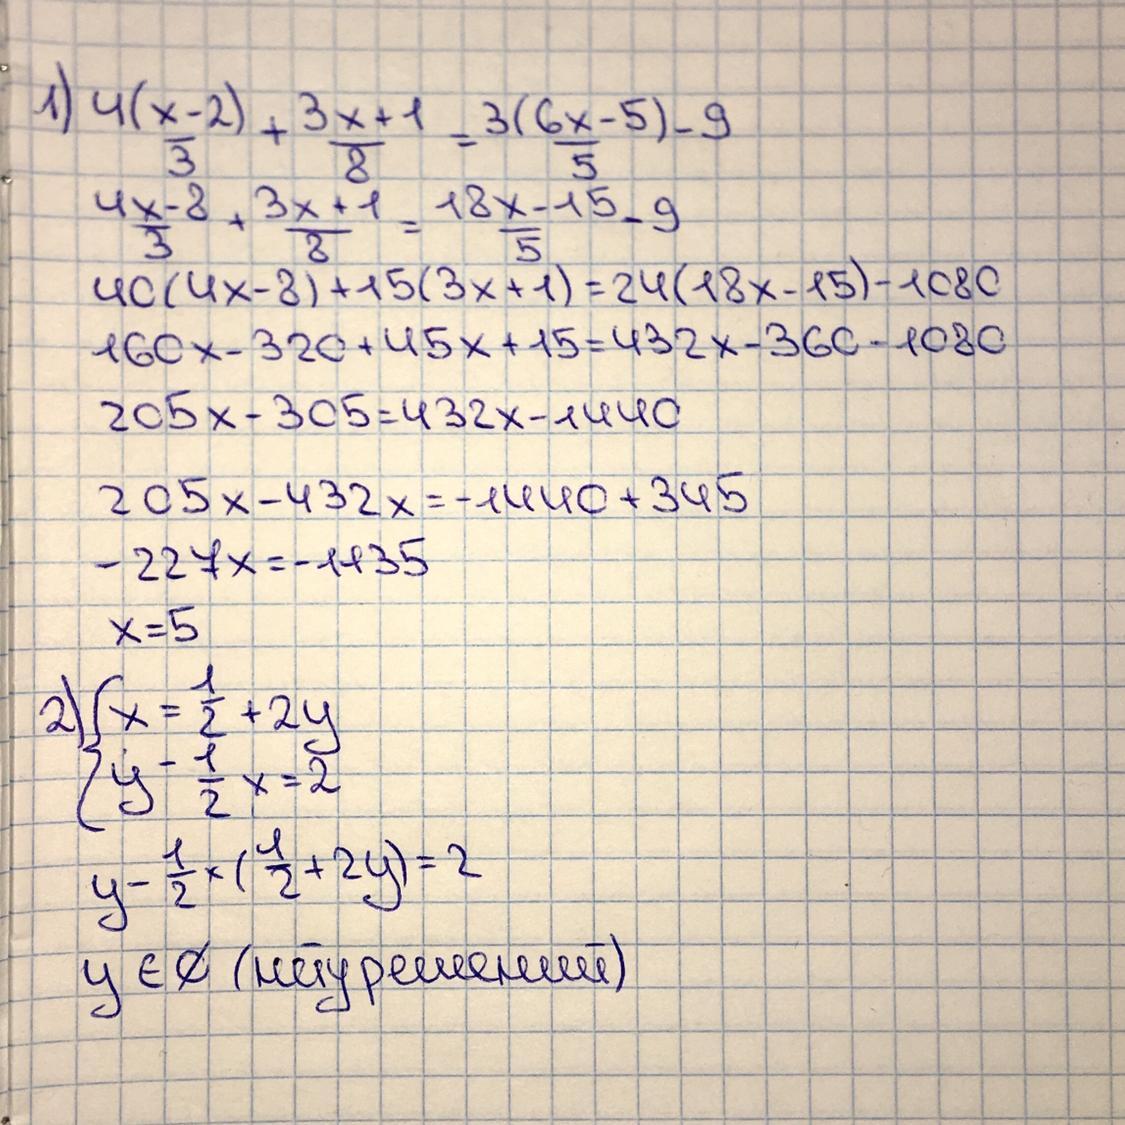 1) 4(x-2)/3 + 3x+1/8 = 3(6x-5)/5 - 9
4x-8/3 + 3x+1/8 = 18x-15/5 - 9
40(4x-8)+15(3x+1)=24(18x-15)-1080
160x-320+45x+15=432x-360-1080
205x-305=432x-1440
205x-432x=-1440+345
-227x=-1135
x=5
2) { x = 1/2 + 2y
y - 1/2 x = 2
y - 1/2 × (1/2 + 2y) = 2
y ∈ ∅ (нету решений)